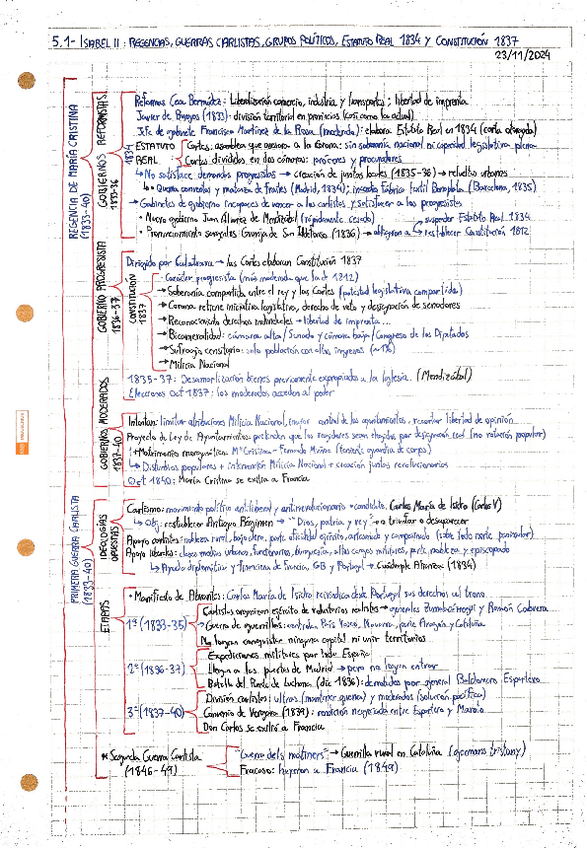 5.1- ISABEL II: REGENCIAS, GUERRAS CARLISTAS, GRUPOS POLÍTICOS, ESTATUTO REAL 1834 Y CONSTITUCIÓN 1837
23/11/2024
REGENCIA DE MARÍA CRISTINA
(1833-40)
GOBIERNOS REFORMISTAS
1833-36
1834
Reformas Cea Bermúdez: liberalización comercio, industria y transportes; libertad de imprenta
Javier de Burgos (1833): división territorial en provincias (casi como la actual)
Jefe de gabinete Francisco Martínez de la Rosa (moderado): elabora Estatuto Real en 1834 (carta otorgada)
ESTATUTO REAL
Cortes: asamblea que asesora a la Corona: sin soberanía nacional ni capacidad legislativa plena
Cortes divididas en dos cámaras: próceres y procuradores
→ No satisface demandas progresistas → creación de juntas locales (1835-36) → revueltas urbanas
→ Quema conventos y matanza de frailes (Madrid, 1834); incendio fábrica textil Bonaplata (Barcelona, 1835)
→ Gabinetes de gobierno incapaces de vencer a los carlistas y satisfacer a los progresistas
• Nuevo gobierno Juan Álvarez de Mendizábal (rápidamente cesado)
• Pronunciamiento sargentos Granja de San Ildefonso (1836) → obligaron a
suspender Estatuto Real 1834
restablecer Constitución 1812
GOBIERNO PROGRESISTA
1836-37
Dirigido por Calatrava → las Cortes elaboran Constitución 1837
CONSTITUCIÓN
1837
Carácter progresista (más moderada que la de 1812)
→ Soberanía compartida entre el rey y las Cortes (potestad legislativa compartida)
→ Corona retiene iniciativa legislativa, derecho de veto y designación de senadores
→ Reconocimiento derechos individuales → libertad de imprenta...
→ Bicameralidad: cámara alta/Senado y cámara baja/Congreso de los Diputados
→ Sufragio censitario: solo población con altos ingresos
→ Milicia Nacional
1835-37: Desamortización bienes previamente expropiados a la Iglesia. (Mendizábal)
Elecciones oct 1837: los moderados acceden al poder
GOBIERNOS MODERADOS
1837-40
Intentan: limitar atribuciones Milicia Nacional, mayor control de los ayuntamientos, recortar libertad de opinión
Proyecto de Ley de Ayuntamientos: pretenden que los regidores sean elegidos por designación real (no votación popular)
(+Matrimonio morganático: Mª Cristina - Fernando Muñoz (teniente guardia de corps)
↳ Disturbios populares + intervención Milicia Nacional + creación juntas revolucionarias
Oct 1840: María Cristina se exilia a Francia
PRIMERA GUERRA CARLISTA
(1833-40)
IDEOLOGÍAS OPUESTAS
Carlismo: movimiento político antiliberal y antirrevolucionario • candidato: Carlos María de Isidro (Carlos V)
↳ Obj: restablecer Antiguo Régimen → "Dios, patria y rey"
Apoyo carlistas: nobleza rural, bajo clero, parte oficialidad ejército, artesanado y campesinado
Apoyo liberales: clases medias urbanas, funcionarios, burguesía, altos cargos militares, parte nobleza y episcopado
↳ Ayuda diplomática y financiera de Francia, GB y Portugal → Cuádruple Alianza (1834)
ETAPAS
• Manifiesto de Abrantes: Carlos María de Isidro reivindica desde Portugal sus derechos al trono.
1ª (1833-35)
Carlistas organizan ejército de voluntarios realistas → generales Zumalacárregui y Ramón Cabrera
→ Guerra de guerrillas: control en País Vasco, Navarra, parte Aragón y Cataluña
No logran conquistar ninguna capital ni unir territorios
2ª (1836-37)
Expediciones militares por toda España
Llegan a las puertas de Madrid → pero no logran entrar
Batalla del Puente de Luchana (dic 1836): derrotados por general Baldomero Espartero
3ª (1837-40)
División carlistas: ultras (mantener guerra) y moderados (solución pacífica)
Convenio de Vergara (1839): rendición negociada entre Espartero y Maroto
Don Carlos se exilia a Francia
* Segunda Guerra Carlista
(1846-49)
"Guerra dels matiners" → Guerrilla rural en Cataluña (germans tristany)
Fracaso: huyeron a Francia (1849)